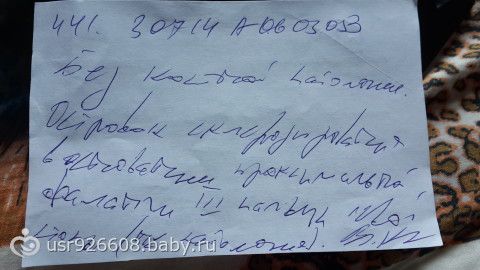 441. 30714 А0603053
Без костной патологии.
Островок склерозирования
в основании проксимальной
фаланги III пальца
usr926608.baby.ru